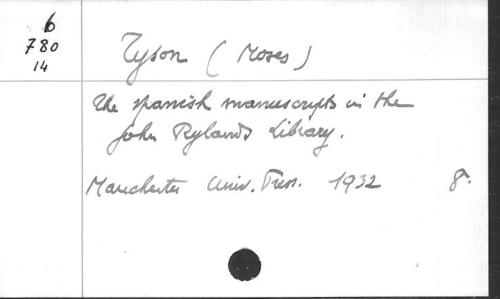 6
780
14
Tyson (Moses)
The spanish manuscripts in the
John Rylands Library.
Manchester Univ. Press. 1932 8.